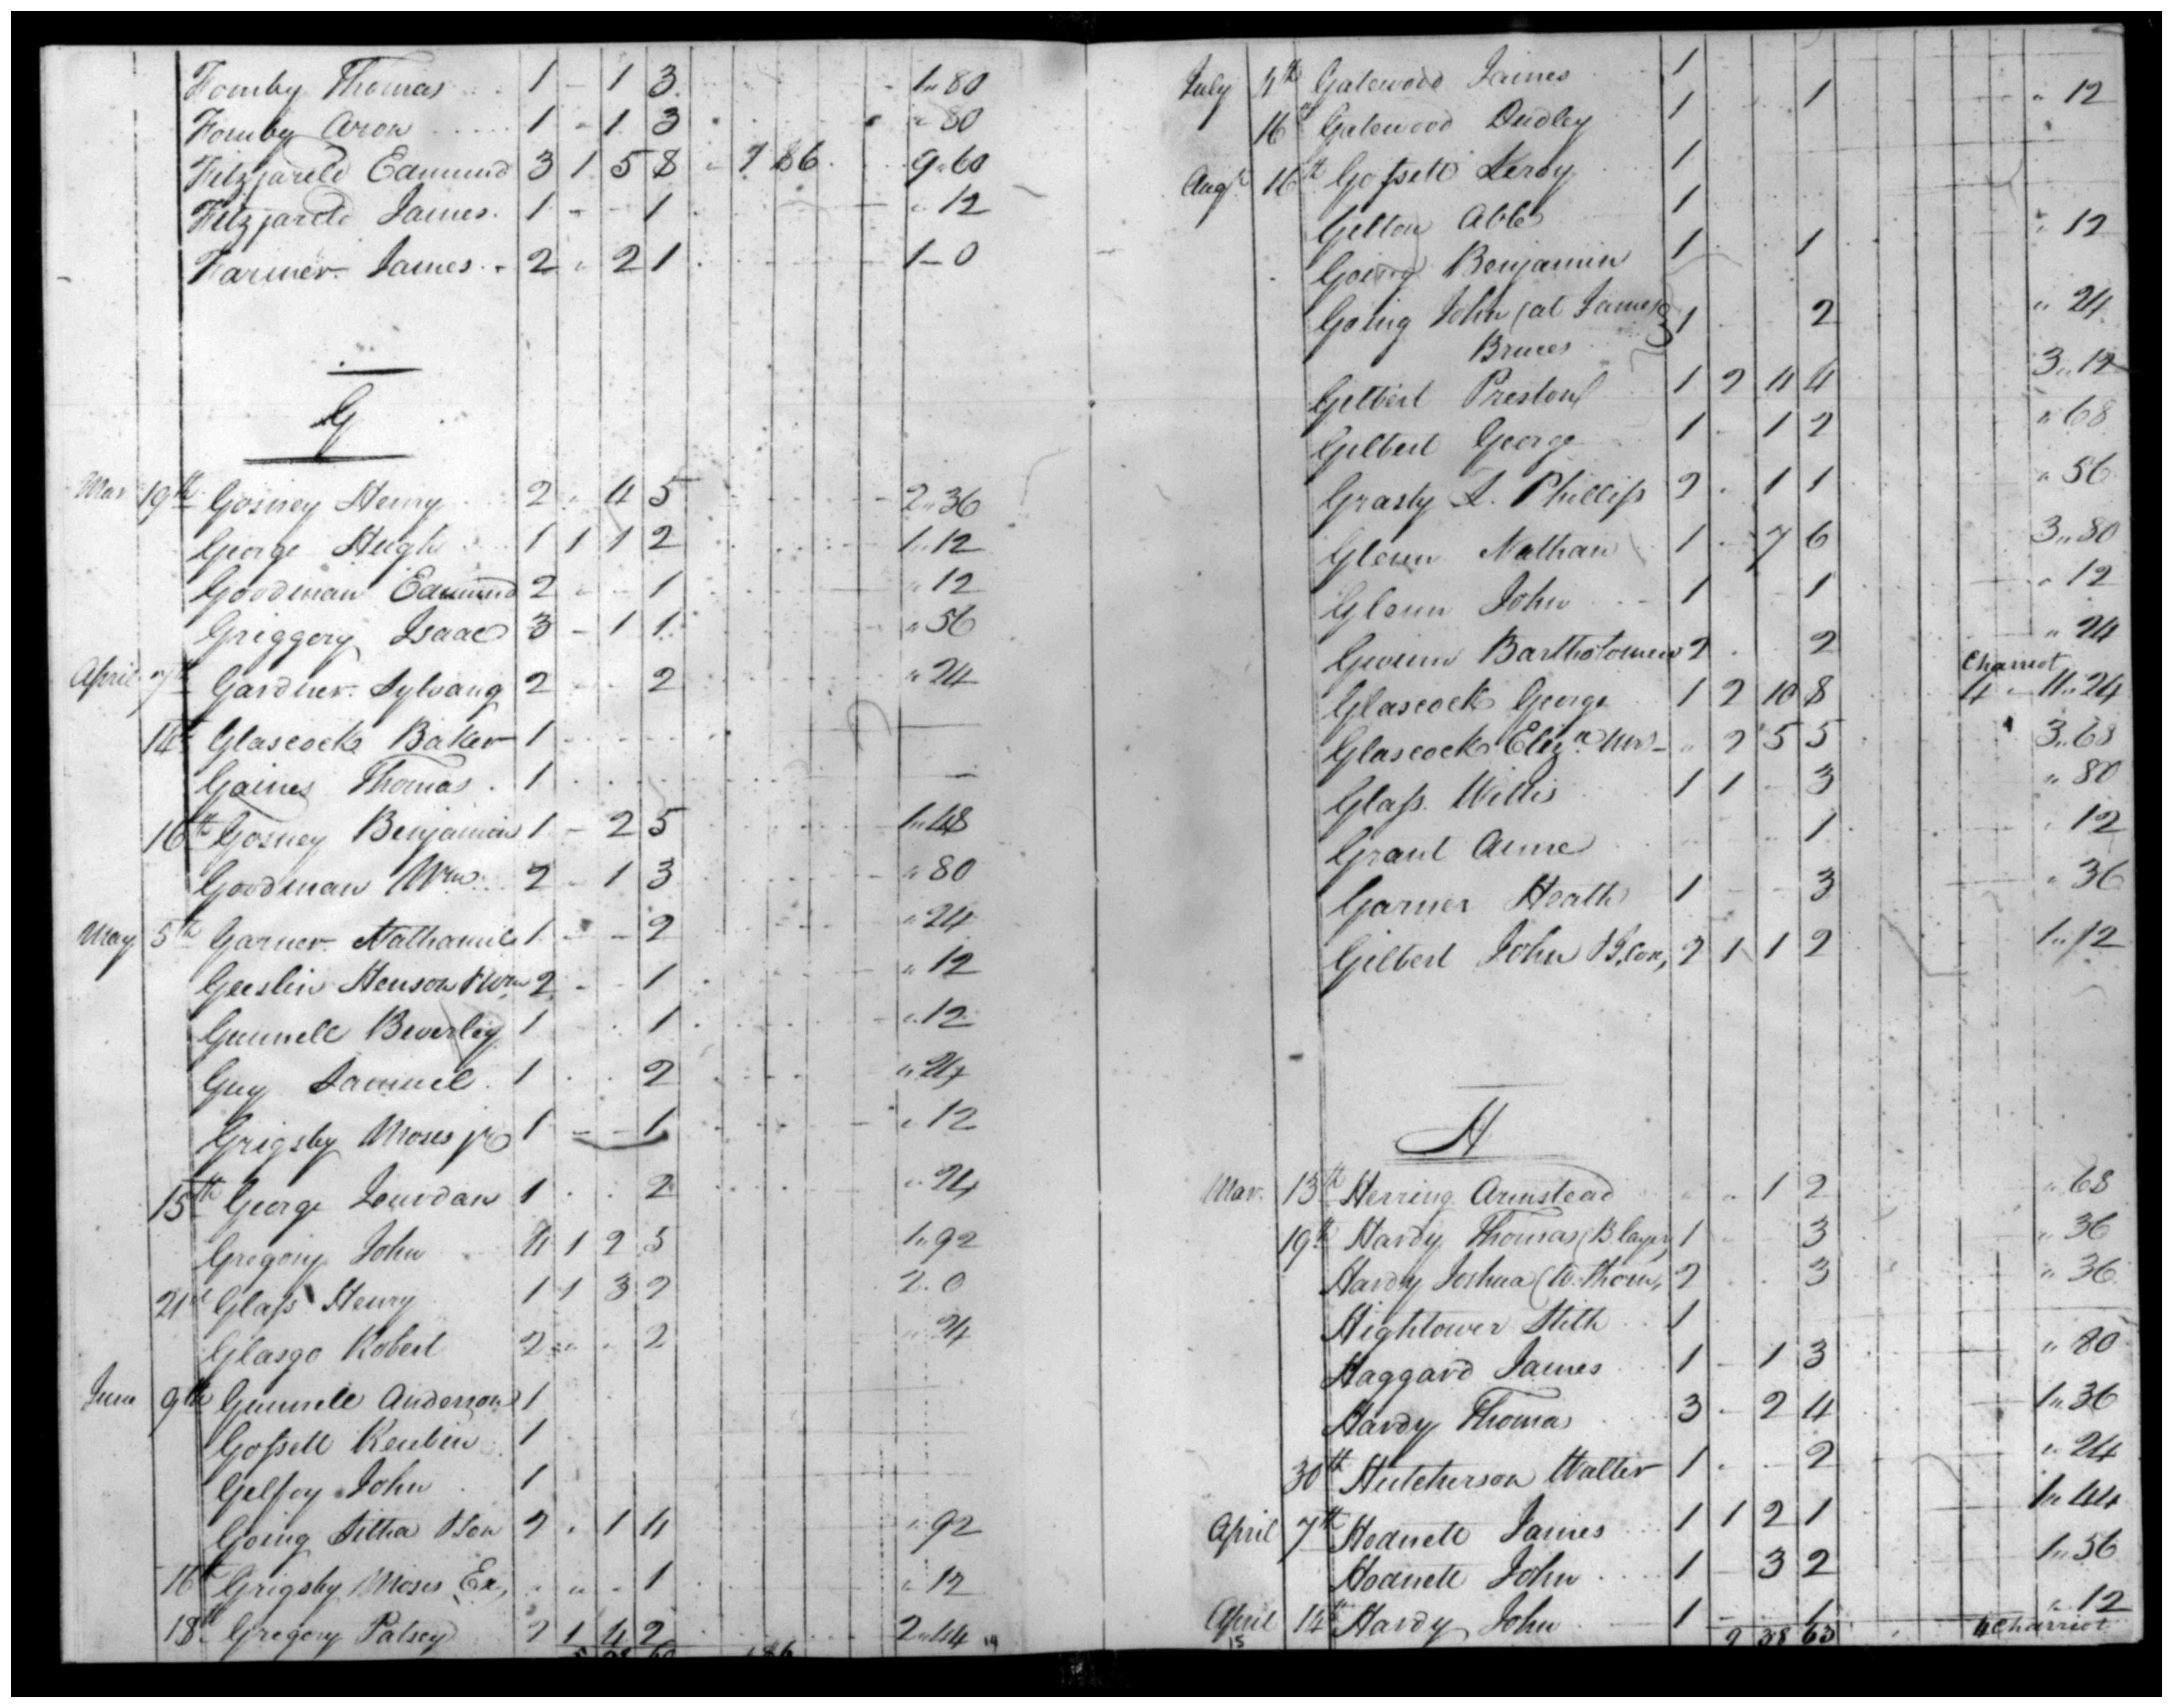 Fomby Thomas 1 - 1 3 1 " 80
Fomby Aron 1 - 1 3 " 80
Fitzjareld Edmund 3 1 5 8 186 9 " 60
Fitzjareld James 1 - - 1 " 12
Farmer James 2 " 2 1 1 - 0
G
Mar 19th Gosney Henry 2 " 4 5 2 " 36
George Hugh 1 1 1 2 1 " 12
Goodman Edmund 2 - - 1 " 12
Griggory Isaac 3 - 1 1 " 56
April 7th Gardner Sylvanq 2 - - 2 " 24
14th Glascock Baker 1
Gaines Thomas 1 -
16th Gosney Benjamin 1 - 2 5 1 " 48
Goodman Wm 2 - 1 3 " 80
May 5th Garner Nathaniel 1 - - 2 " 24
Geeslin Henson & Wm 2 - - 1 " 12
Gunnell Beverley 1 1 " 12
Guy Samuel 1 2 " 24
Grigsby Moses jr 1 - - 1 " 12
15th George Jourdan 1 2 " 24
Gregory John 4 1 2 5 1 " 92
21st Glass Henry 1 1 3 2 2 " 0
Glasgo Robert 2 " - 2 " 24
June 9th Gunnell Anderson 1
Gossett Reubin 1
Gelfoy John 1
Going Sitha & Son 2 " 1 4 " 92
16th Grigsby Moses Ex, " " - 1 " 12
18th Gregory Patsey 2 1 4 2 2 " 44
186 14
July 4th Gatewood James 1
16th Gatewood Dudley 1 1 " 12
Augt 16th Gossett Leroy 1
Gelton Able 1
Going Benjamin 1 1 " 12
Going John (at James 1 2 " 24
Bruces
Gilbert Preston 1 2 4 4 3 " 12
Gilbert George 1 - 1 2 " 68
Grasty S. Phillip 2 - 1 1 " 56
Glenn Nathan 1 - 7 6 3 " 80
Glenn John 1 1 " 12
Gwinn Bartholomew 2 2 " 24
Charriot
Glascock George 1 2 10 8 4 - 11 " 24
Glascock Eliza Mrs - " 2 5 5 3 " 68
Glass Willis 1 1 - 3 " 80
Grant Anne 1 " 12
Garner Heath 1 - - 3 " 36
Gilbert John & Son, 2 1 1 2 1 " 12
H
Mar. 13th Herring Armstead " " 1 2 " 68
19th Hardy Thomas (B. layer) 1 3 " 36
Hardy Joshua (W. Thorn, 2 3 " 36
Hightower Stith 1
Haggard James 1 - 1 3 " 80
Hardy Thomas 3 - 2 4 1 " 36
30th Hutcherson Walter 1 2 " 24
April 7th Hodnett James 1 1 2 1 1 " 44
Hodnett John 1 - 3 2 1 " 56
April 14th Hardy John 1 - - 1 " 12
15 9 38 63 4 Charriot